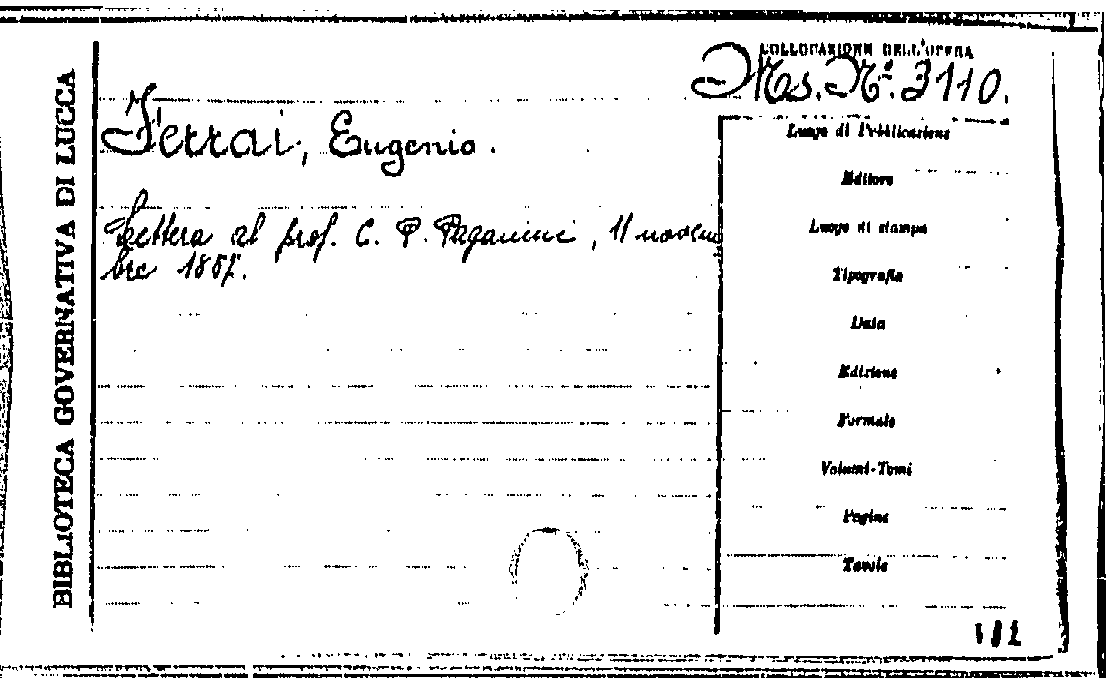 BIBLIOTECA GOVERNATIVA DI LUCCA
COLLOCAZIONE DELL'OPERA
Ms. Nº. 3110.
Ferrai, Eugenio.
Lettera al prof. C. P. Paganini, 11 novem
bre 1857.
Luogo di Pubblicazione
Editore
Luogo di stampa
Tipografia
Data
Edizione
Formato
Volumi-Tomi
Pagine
Tavole